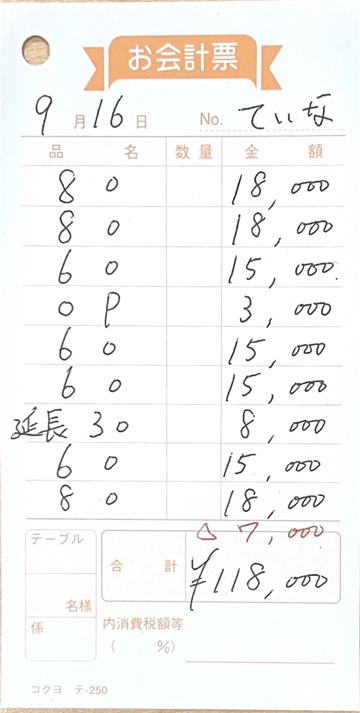 お会計票
9月16日 No. ていな
品名 数量 金額
80 18,000
80 18,000
60 15,000.
OP 3,000
60 15,000
60 15,000
延長30 8,000
60 15,000
80 18,000
△7,000
テーブル
合計 ¥118,000
名様
係
内消費税額等
( %)
コクヨ テ-250